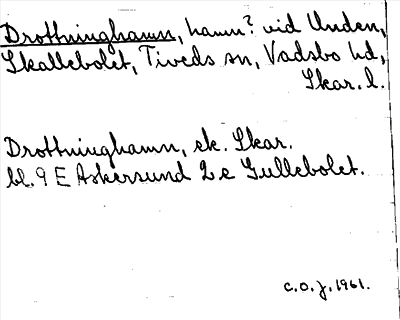 Drottninghamn, hamn? vid Unden,
Skallebolet, Tiveds sn, Vadsbo hd,
Skar. l.
Drottninghamn, ek. Skar.
bl. 9 E Askersund 2 e Gullebolet.
C.O.J. 1961.